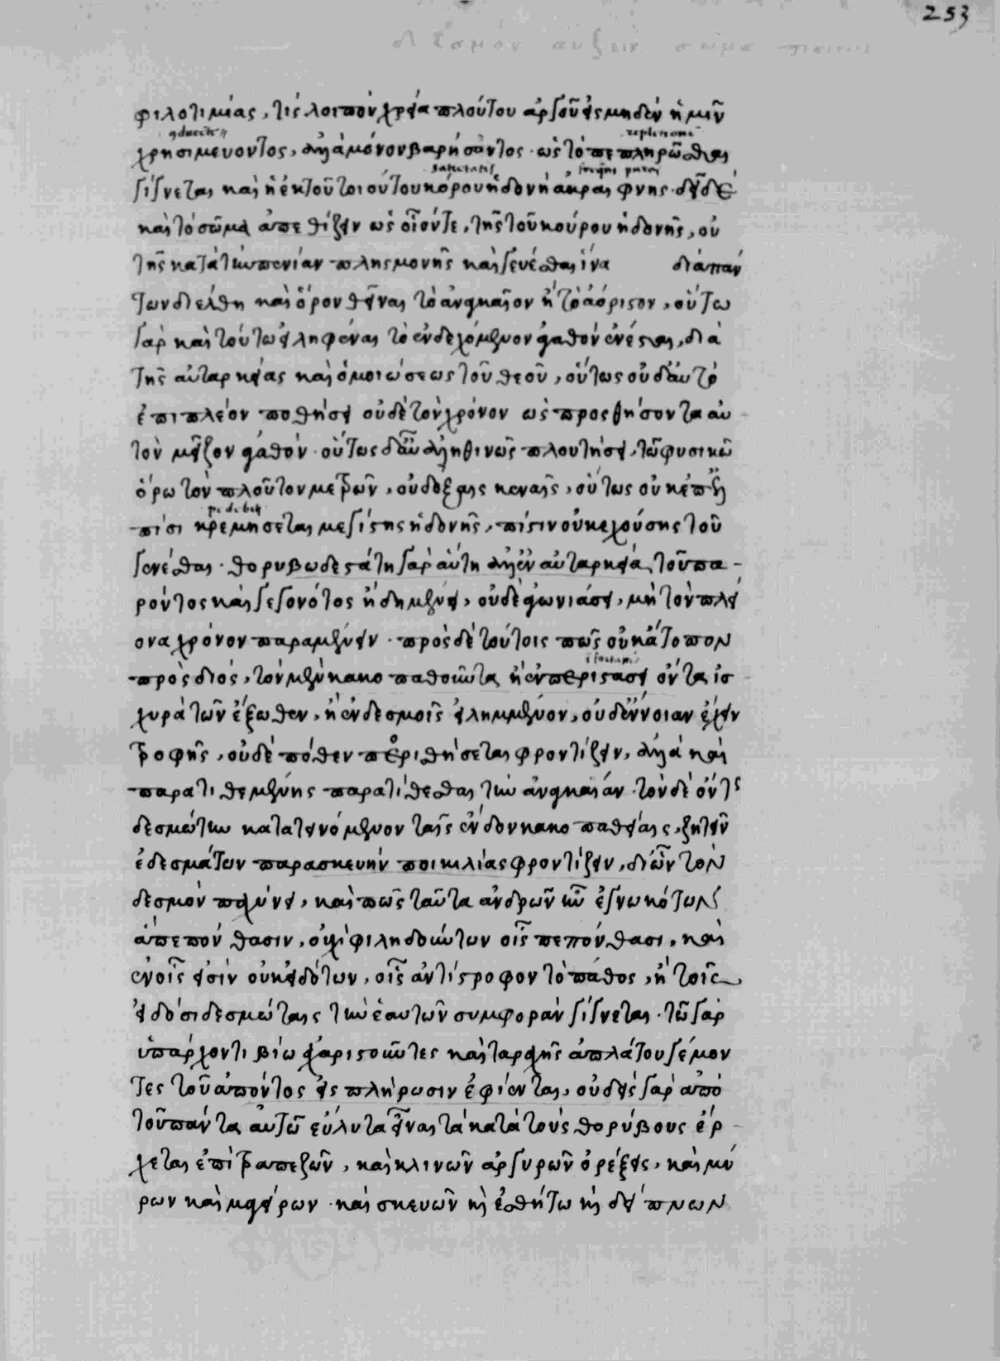 253
δεσμὸν αὔξειν σῶμα
φιλοτιμίας, τίς λοιπὸν χρεία πλούτου ἀργοῦ εἰς μηδὲν ἡμῖν
χρησιμεύοντος, ἀλλὰ μόνον βαρήσαντος. ὡς τὸ πεπληρῶσθαι
γίγνεται καὶ ἡ ἐκ τοῦ τοιούτου κόρου ἡδονὴ ἀκραιφνής.
καὶ τὸ σῶμα ἀπεθίζειν ὡς οἷόν τε, τῆς τοῦ κούρου ἡδονῆς, οὐ
τῆς κατὰ τὴν πενίαν πλησμονῆς καὶ γεύεσθαι ἵνα διὰ πάν
των διέλθῃ καὶ ὅρον θεῖναι τὸ ἀναγκαῖον ἢ τὸ ἀόριστον, οὕτω
γὰρ καὶ τούτῳ εἰληφέναι τὸ ἐνδεχόμενον ἀγαθὸν ἐνέσται, διὰ
τῆς αὐταρκείας καὶ ὁμοιώσεως τοῦ θεοῦ, οὕτως οὐδ' αὐτὸ
ἐπιπλέον ποθήσει οὐδὲ τὸν χρόνον ὡς προσθήσοντα αὐ
τὸν μεῖζον ἀγαθόν. οὕτως δ' ἂν ἀληθινῶς πλουτήσει, τῷ φυσικῷ
ὅρῳ τὸν πλοῦτον μετρῶν, οὐ δόξαις κεναῖς, οὕτως οὐκ ἐπ'
πίσι κρεμήσεται μεγίστης ἡδονῆς, πίστιν οὐκ ἐχούσης τοῦ
γενέσθαι. θορυβωδεστάτη γὰρ αὕτη ἀλλ' ἐν αὐταρκείᾳ τοῦ πα-
ρόντος καὶ γεγονότος ἤδη μενεῖ, οὐδὲ ἀγωνιάσει, μὴ τὸν πλεί
ονα χρόνον παραμένειν. πρὸς δὲ τούτοις πῶς οὐκ ἄτοπον
πρὸς διός, τὸν μὲν κακοπαθοῦντα ἢ ἐν περιστάσει ὄντα ἰσ
χυρᾷ τῶν ἔξωθεν, ἢ ἐν δεσμοῖς εἰλημμένον, οὐδ' ἔννοιαν ἔχειν
τροφῆς, οὐδὲ πόθεν περιθήσεται φροντίζειν, ἀλλὰ καὶ
παρατιθεμένης παρατίθεσθαι τὴν ἀναγκαίαν. τὸν δὲ ὄντως
δεσμώτην κατατεινόμενον ταῖς ἔνδον κακοπαθείαις, ζητεῖν
ἐδεσμάτων παρασκευὴν ποικιλίας φροντίζειν, δι' ὧν τὸν
δεσμὸν παχύνει, καὶ πῶς ταῦτα ἀνδρῶν ἦν ἐγνωκότων
ἃ πεπόνθασιν, οὐχὶ φιληδούντων οἷς πεπόνθασι, καὶ
ἐν οἷς εἰσὶν οὐκ εἰδότων, οἷς ἀντίστροφον τὸ πάθος, ἢ τοῖς
εἰδόσι δεσμώταις τὴν ἑαυτῶν συμφορὰν γίγνεται. τῷ γὰρ
ὑπάρχοντι βίῳ ἀχαριστοῦντες καὶ ταραχῆς ἀπλάτου γέμον
τες τοῦ ἀπόντος εἰς πλήρωσιν ἐφίενται, οὐδεὶς γὰρ ἀπὸ
τοῦ πάντα αὐτῷ εὔλυτα εἶναι τὰ κατὰ τοὺς θορύβους ἔρ-
χεται ἐπὶ τραπεζῶν, καὶ κλινῶν ἀργυρῶν ὀρέξεις, καὶ μύ
ρων καὶ μαγείρων. καὶ σκευῶν καὶ ἐσθήτων καὶ δείπνων